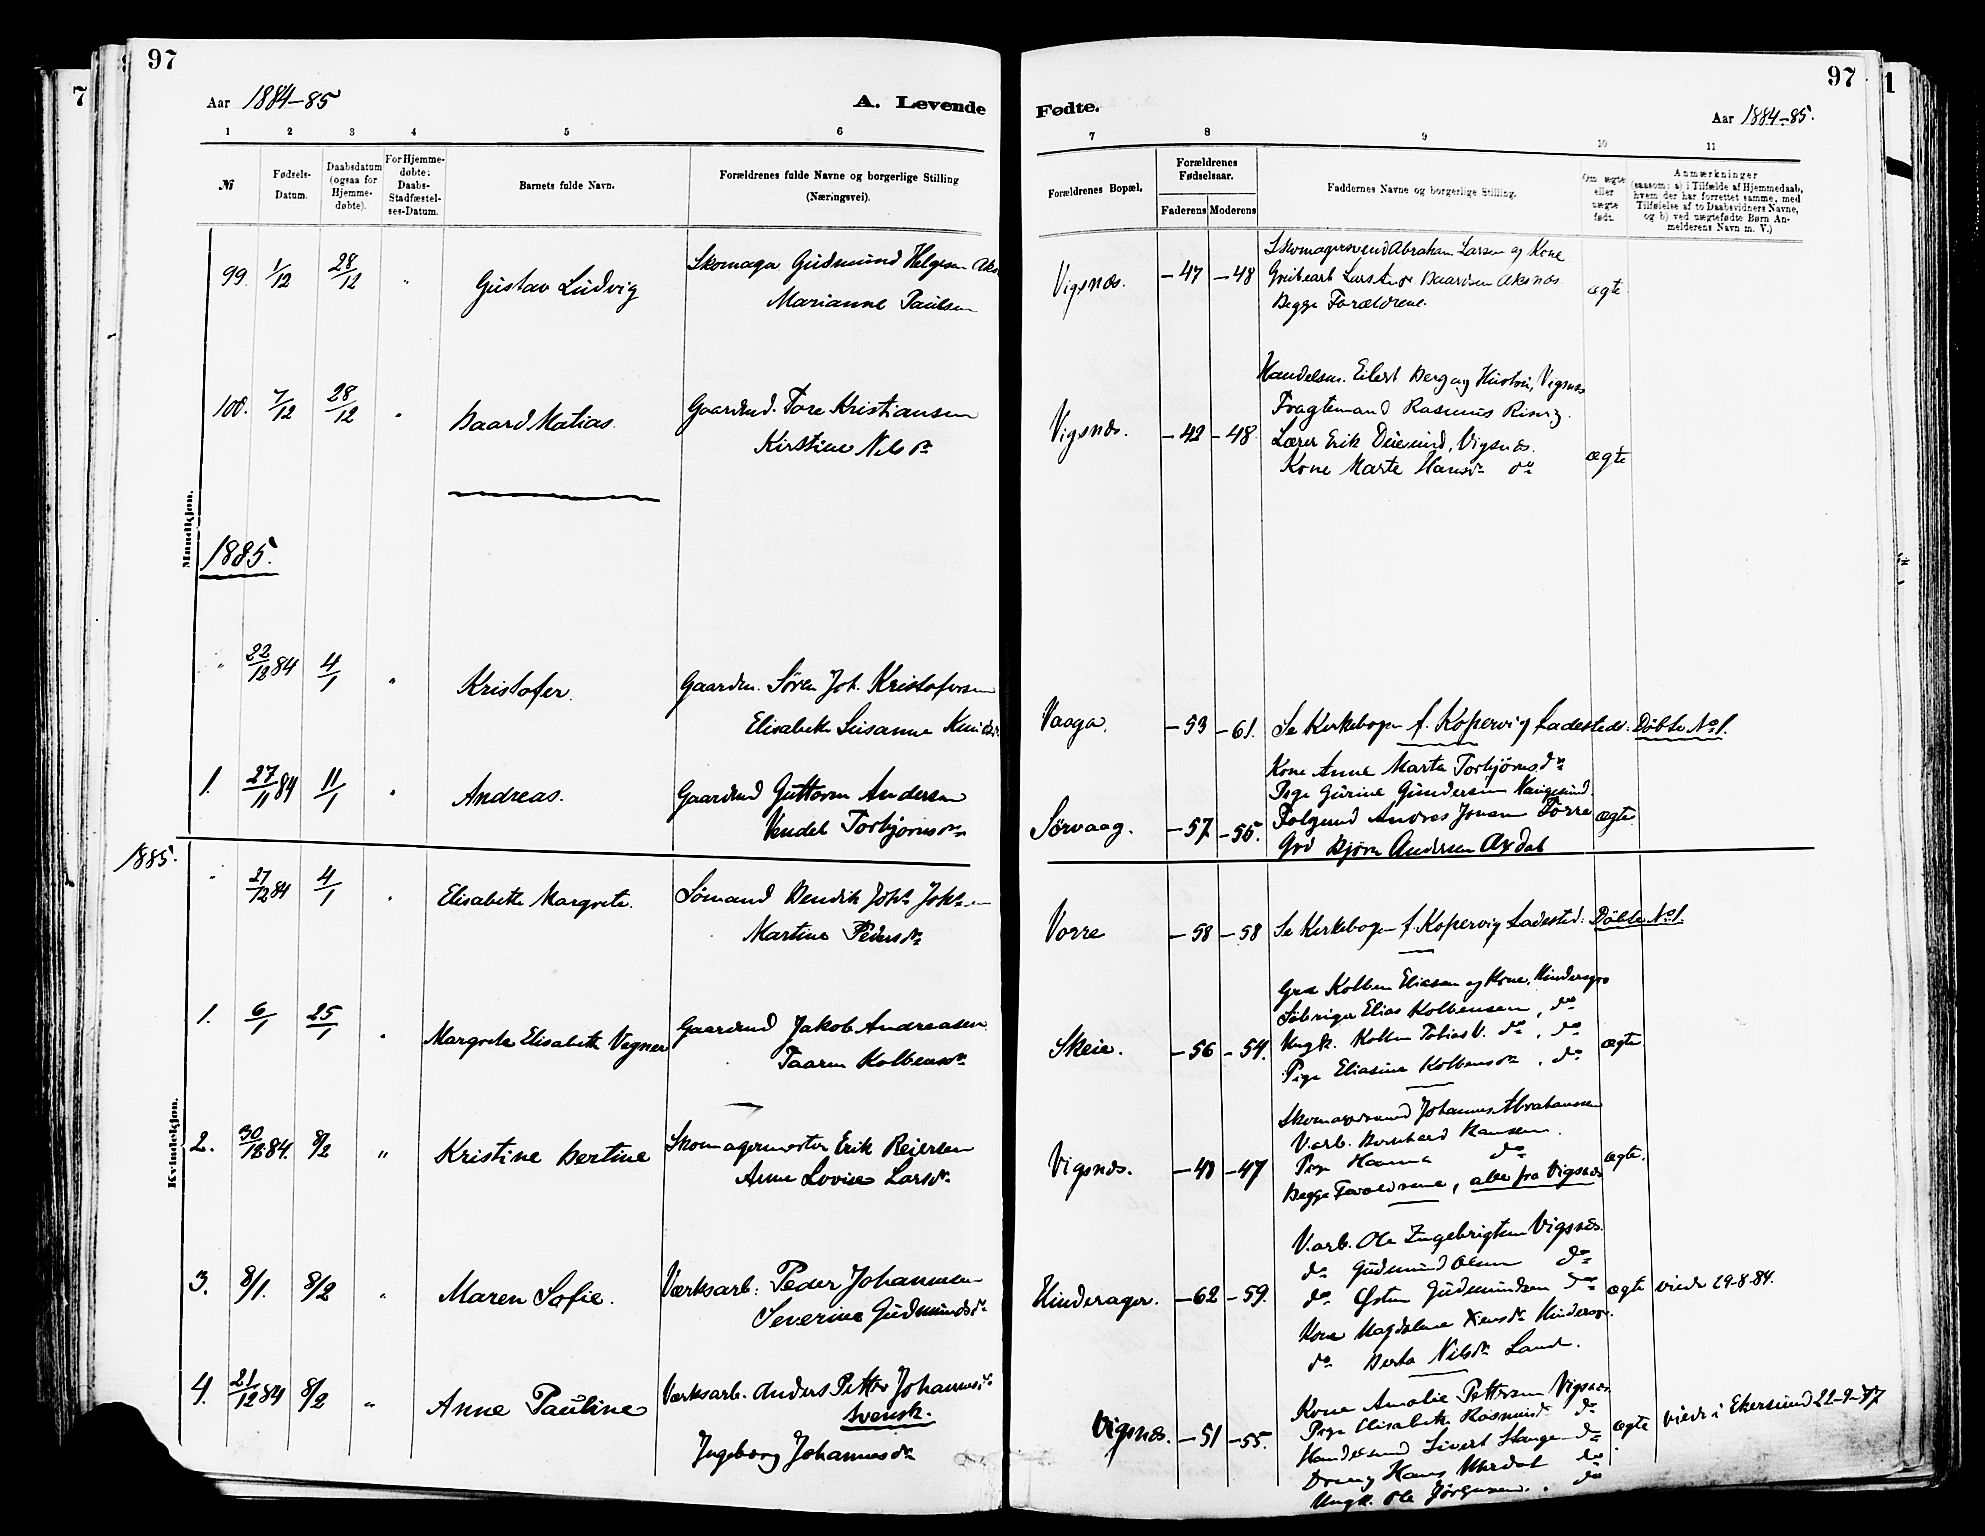 97
Aar 1884-85
A. Levende
1 2 3 4 5 6
№
Fødsels-Datum.
Daabsdatum (ogsaa for Hjemme-døbte).
For Hjemme-døbte: Daabs-Stadfæstel-ses-Datum.
Barnets fulde Navn.
Forældrenes fulde Navne og borgerlige Stilling
(Næringsvei).
Mandkjøn.
99. 1/12 28/12 " Gustav Ludvig
Skomager Gudmund Helgesen
Marianne Paulsen
100. 7/12 28/12 " Baard Matias.
Gaardmd. Tore Kristiansen
Kirstine Nilsdr
1885.
" 22/12 84 4/1 " Kristofer.
Gaardm. Søren Joh. Kristofersen
Elisabeth Susanne
1. 27/11 84 11/1 " Andreas.
Gaardmd Guttorm Andersen
Vendel Torbjørnsdr
1885.
" 27/12 84 4/1 " Elisabeth Margrete.
Sømand Bendik Johs Johsen
Martine Pedersdr
Kvindekjøn.
1. 6/1 25/1 " Margrete Elisabeth Vegner
Gaardmd Jakob Andreasen
Taaren Kolbensdr
2. 30/12 84. 8/2 " Kristine Bertine
Skomagermester Erik Reiersen
Anne Lovise Larsdr.
3. 8/1. 8/2 " Maren Sofie.
Værksarb: Peder Johannesen
Severine Gudmundsdr
4. 21/12 84 8/2 " Anne Pauline
Værksarb. Anders Petter Johannes
svensk.
Ingeborg Johannesdr
97
Fødte.
Aar 1884-85.
7 8 9 10 11
Forældrenes Bopæl.
Forældrenes Fødselsaar.
Faderens Moderens
Faddernes Navne og borgerlige Stilling.
Om ægte eller uægte født.
Anmærkninger
(saasom: a) i Tilfælde af Hjemmedaab,
hvem der har forrettet samme, med
Tilføielse af to Daabsvidners Navne,
og b) ved uægtefødte Børn An-
melderens Navn m. V.)
Vigsnæs. -47 -48
Skomagersvend Abraham Larsen og Kone
Grubearb Lars Baardsen Aksnæs
Begge Forældrene.
ægte
Vigsnæs. -42 -48
Handelsm. Eilert Berg og Hustru, Vigsnæs
Fragtemand Rasmus
Lærer Erik Vigsnæs.
Kone Marte Hansdr do
ægte
Vaaga. -53 -61.
Se Kirkebogen f. Kopervig Ladested: Døbte No 1.
Sørvaag. -57 -55.
Kone Anne Marta Torbjørnsdr
Pige Gurine Gundersen
Andres Jonsen Torre
Grd Bjørn Andersen
ægte
Vorre -58 -58
Se Kirkebogen f. Kopervig Ladested: Døbte No 1.
Skeie. -56 -54.
Grd Kolben Eliasen og Kone, Hinderager
Elias Kolbensen, do
Ungk. Kolben Tobias V. do, do
Pige Eliasine Kolbensdr, do
ægte
Vigsnæs. -48 -47
Johannes Abrahamsen
Varb. Bernhard Hansen.
Pige Hanna do
Begge Forældrene, alle fra Vigsnæs
ægte.
Hinderager. -62 -59.
Varb. Ole Ingebrigtsen Vigsnæs.
do Gudmund Olsen do
do Østen Gudmundsen do
Kone Magdalene Hinderager.
do Berta Nilsdr Sand.
ægte
viede 29-8-84.
Vigsnæs. -51 -55.
Kone Amalie Pettersen Vigsnæs
Pige Elisabeth do
Sivert Stange do
Dreng Hans do
Ungk. Ole Jørgensen. do
ægte
viede i Ekersund 22-9-77